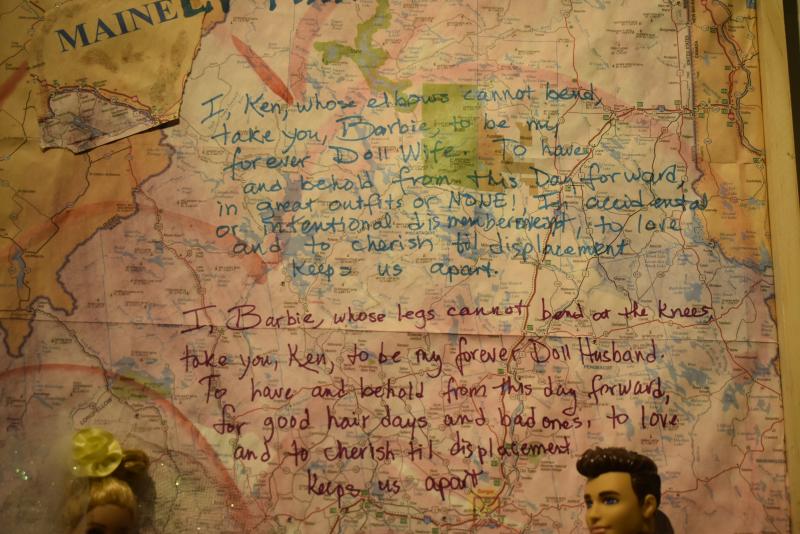 MAINE
I, Ken, whose elbows cannot bend,
take you, Barbie, to be my
forever Doll Wife. To have
and behold from this Day forward,
in great outfits or NONE! In accidental
or intentional dismemberment, to love
and to cherish til displacement
keeps us apart.
I, Barbie, whose legs cannot bend at the knees,
take you, Ken, to be my forever Doll Husband.
To have and behold from this day forward,
for good hair days and bad ones, to love
and to cherish til displacement
keeps us apart.